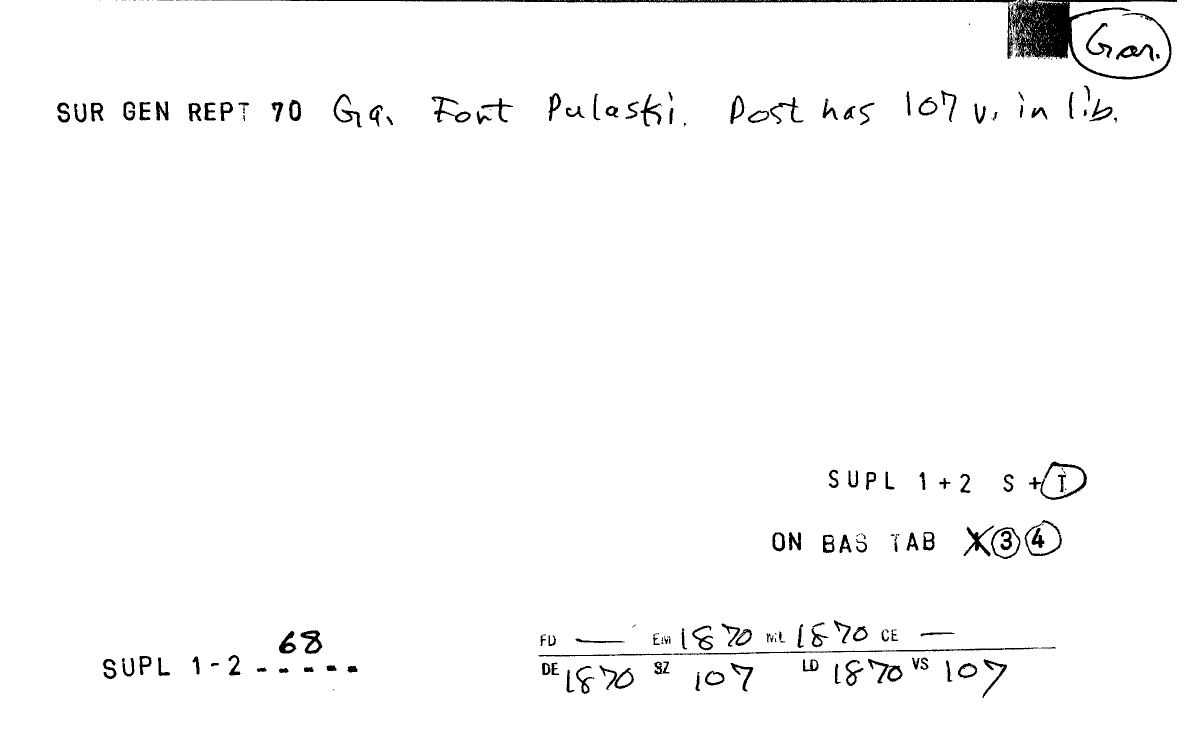 Gar.
SUR GEN REPT 70 Ga. Fort Pulaski. Post has 107 v. in lib.
SUPL 1+2 S+T
ON BAS TAB X 3 4
68
SUPL 1-2 -----
FD — EM 1870 ML 1870 CE —
DE 1870 SZ 107 LD 1870 VS 107